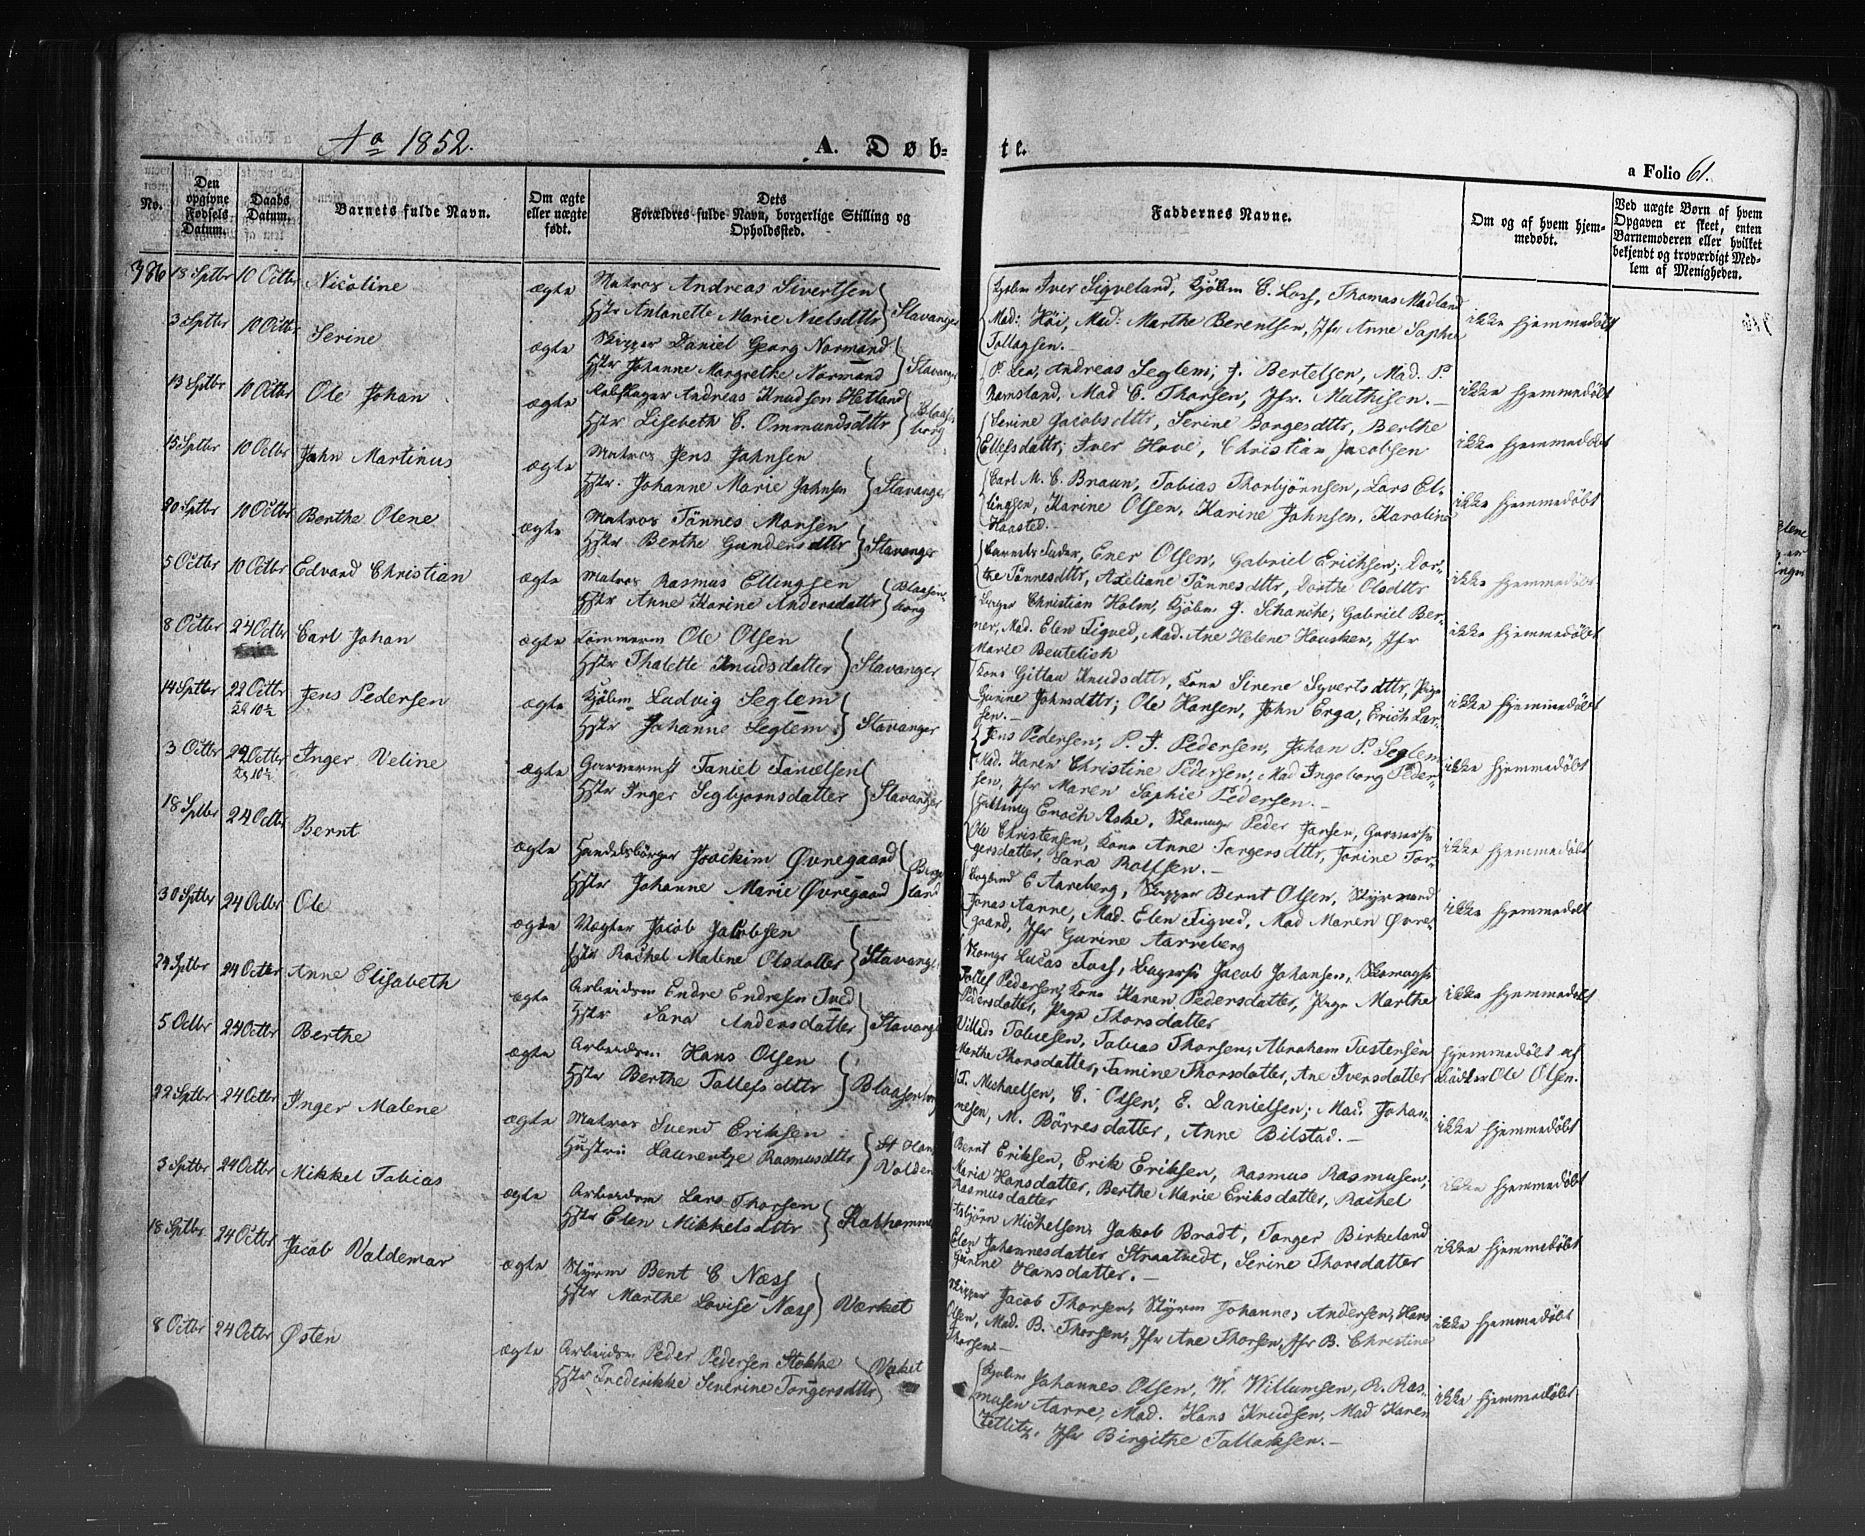 Aº 1852.
A. Døb-
te.
a Folio 61.
No.
Den opgivne Fødsels Datum.
Daabs Datum.
Barnets fulde Navn.
Om ægte eller uægte født.
Dets Forældres fulde Navn, borgerlige Stilling og Opholdssted.
Faddernes Navne.
Om og af hvem hjemmedøbt.
Ved uægte Børn af hvem Opgaven er skeet, enten Barnemoderen eller hvilket bekjendt og troværdigt Medlem af Menigheden.
386 18 Sptbr 10 Octbr Nicoline ægte Matros Andreas Sivertsen
Hstr Antonette Marie Nielsdttr Stavanger
Iver Sigveland, Kjøbm C. Loss, Thomas Madland
Mad: Høi, Mad: Marthe Berentsen, Jfr Anne Sophie
Tollagsen.
ikke hjemmedøbt
3 Sptbr 10 Octbr Serine ægte Skipper Daniel Georg Normand
Hstr Johanne Margrethe Normand Stavanger
P. Lea, Andreas Seglem, J. Bertelsen, Mad. P.
Ramsland, Mad C. Thorsen, Jfr. Mathisen.
ikke hjemmedøbt
13 Sptbr 10 Octbr Ole Johan ægte Andreas Knudsen Hetland
Hstr Lisebeth C. Ommundsdttr Blaasenborg
Serine Jacobsdttr, Serine Borgesdttr, Berthe
Ellefsdatter; Iver Hove, Christian Jacobsen
ikke hjemmedøbt
15 Sptbr 10 Octbr John Martinus ægte Matros Jens Johnsen
Hstr. Johanne Marie Johnsen Stavanger
Carl M. C. Braun, Tobias Thorbjörnsen, Lars El-
lingsen, Karine Olsen, Karine Johnsen, Karoline
Haasted.
ikke hjemmedøbt
20 Sptbr 10 Octbr Berthe Olene ægte Matros Tönnes Monsen
Hstr Berthe Gundersdttr Stavanger
Barnets Fader, Ener Olsen, Gabriel Erichsen; Dor-
the Tönnesdttr, Axeliane Tönnesdttr, Dorthe Olsdttr
ikke hjemmedøbt
5 Octbr 10 Octbr Edvard Christian ægte Matros Rasmus Ellingsen
Hstr Anne Karine Andersdatter Blaasenborg
Christian Holm, Kjøbm J. Schanche, Gabriel Ber-
ner, Mad. Elen Tigved, Mad. Ane Helene Hausken, Jfr
Marie Beutelich
ikke hjemmedøbt
8 Octbr 24 Octbr Carl Johan ægte Tømmerm Ole Olsen
Hstr Thalette Knudsdatter Stavanger
Kone Gitlau Knudsdttr, Kone Sirene Syvertsdttr, Pige
Gurine Johnsdttr; Ole Hansen, John Erga, Erich Lar-
sen.
ikke hjemmedøbt
14 Sptbr 22 Octbr Jens Pedersen ægte Kjøbm Ludvig Seglem
Hstr Johanne Seglem Stavanger
Jens Pedersen, P. J. Pedersen, Johan P. Seglem
Mad. Karen Christine Pedersen, Mad Ingeborg Peder-
sen, Jfr Maren Sophie Pedersen.
ikke hjemmedøbt
3 Octbr 22 Octbr Inger Veline ægte Garvermst Taniel Tanielsen
Hstr Inger Segbjornsdatter Stavanger
Enoch Aske, Skomager Peder Jansen, Garversv
Ole Christensen, Kone Anne Torgersdttr, Jorine Tor-
gersdatter, Sara Rolfsen.
ikke hjemmedøbt
18 Sptbr 24 Octbr Bernt ægte Handelsbörger Joackim Øvregaard
Hstr Johanne Marie Øvregaard Birgeland
E Aareberg, Skipper Bernt Olsen, Styrmand
Jonas Aanne, Mad. Elen Tigved, Mad Maren Øvre-
gaard, Jfr Gurine Aarreberg
ikke hjemmedøbt
30 Sptbr 24 Octbr Ole ægte Vægter Jacob Jacobsen
Hstr Rachel Malene Olsdatter Stavanger
Lucas Foss, Jacob Johansen, Skomagsv
Tollef Pedersen, Kone Karen Pedersdatter, Pige Marthe
Pedersdatter, Pige Thorsdatter
ikke hjemmedøbt
24 Sptbr 24 Octbr Anne Elisabeth ægte Arbeidsm Endre Endresen Tved
Hstr Sara Andersdatter Stavanger
Villads Tobiesen, Tobias Thorsen, Abraham Tostensen
Marthe Thorsdatter, Tamine Thorsdatter, Ane Iversdatter
hjemmedøbt af
Ole Olsen.
5 Octbr 24 Octbr Berthe ægte Arbeidsm Hans Olsen
Hstr Berthe Tollefsdttr Blaasenborg
T. Michaelsen, C. Olsen, E. Danielsen; Mad. Johan-
nesen, M. Börresdatter, Anne Bilstad.
ikke hjemmedøbt
22 Sptbr 24 Octbr Inger Malene ægte Matros Svend Eriksen
Hustru Laurentze Rasmusdttr St Hans Volden
Bernt Eriksen, Erik Eriksen, Rasmus Rasmusen,
Maria Hansdatter, Berthe Marie Eriksdatter, Rachel
Rasmusdatter
ikke hjemmedøbt
3 Sptbr 24 Octbr Mikkel Tobias ægte Arbeidsm Lars Thorsen
Hstr Elen Mikkelsdttr
Asbjörn Michelsen, Jakob Bradt, Torger Birkeland
Elen Johannesdatter Straatvedt, Serine Thorsdatter
Gurine Hansdatter.
ikke hjemmedøbt
18 Sptbr 24 Octbr Jacob Valdemar ægte Styrm Bent C Næss
Hstr Marthe Lovise Næss Værket
Skipper Jacob Thorsen, Styrm Johannes Andersen, Hans
Olsen, Mad. B. Thorsen, Jfr Ane Thorsen, Jfr B. Christine
Thorsen
ikke hjemmedøbt
8 Octbr 24 Octbr Østen ægte Arbeidsm Peder Pedersen Stokke
Hstr Frederikke Severine Torgersdttr Værket
Kjøbm Johannes Olsen, W. Willumsen, R. Ras-
musen Aarre, Mad. Hans Knudsen, Mad Karen
Zetlitz, Jfr Birgithe Tollaksen.
ikke hjemmedøbt